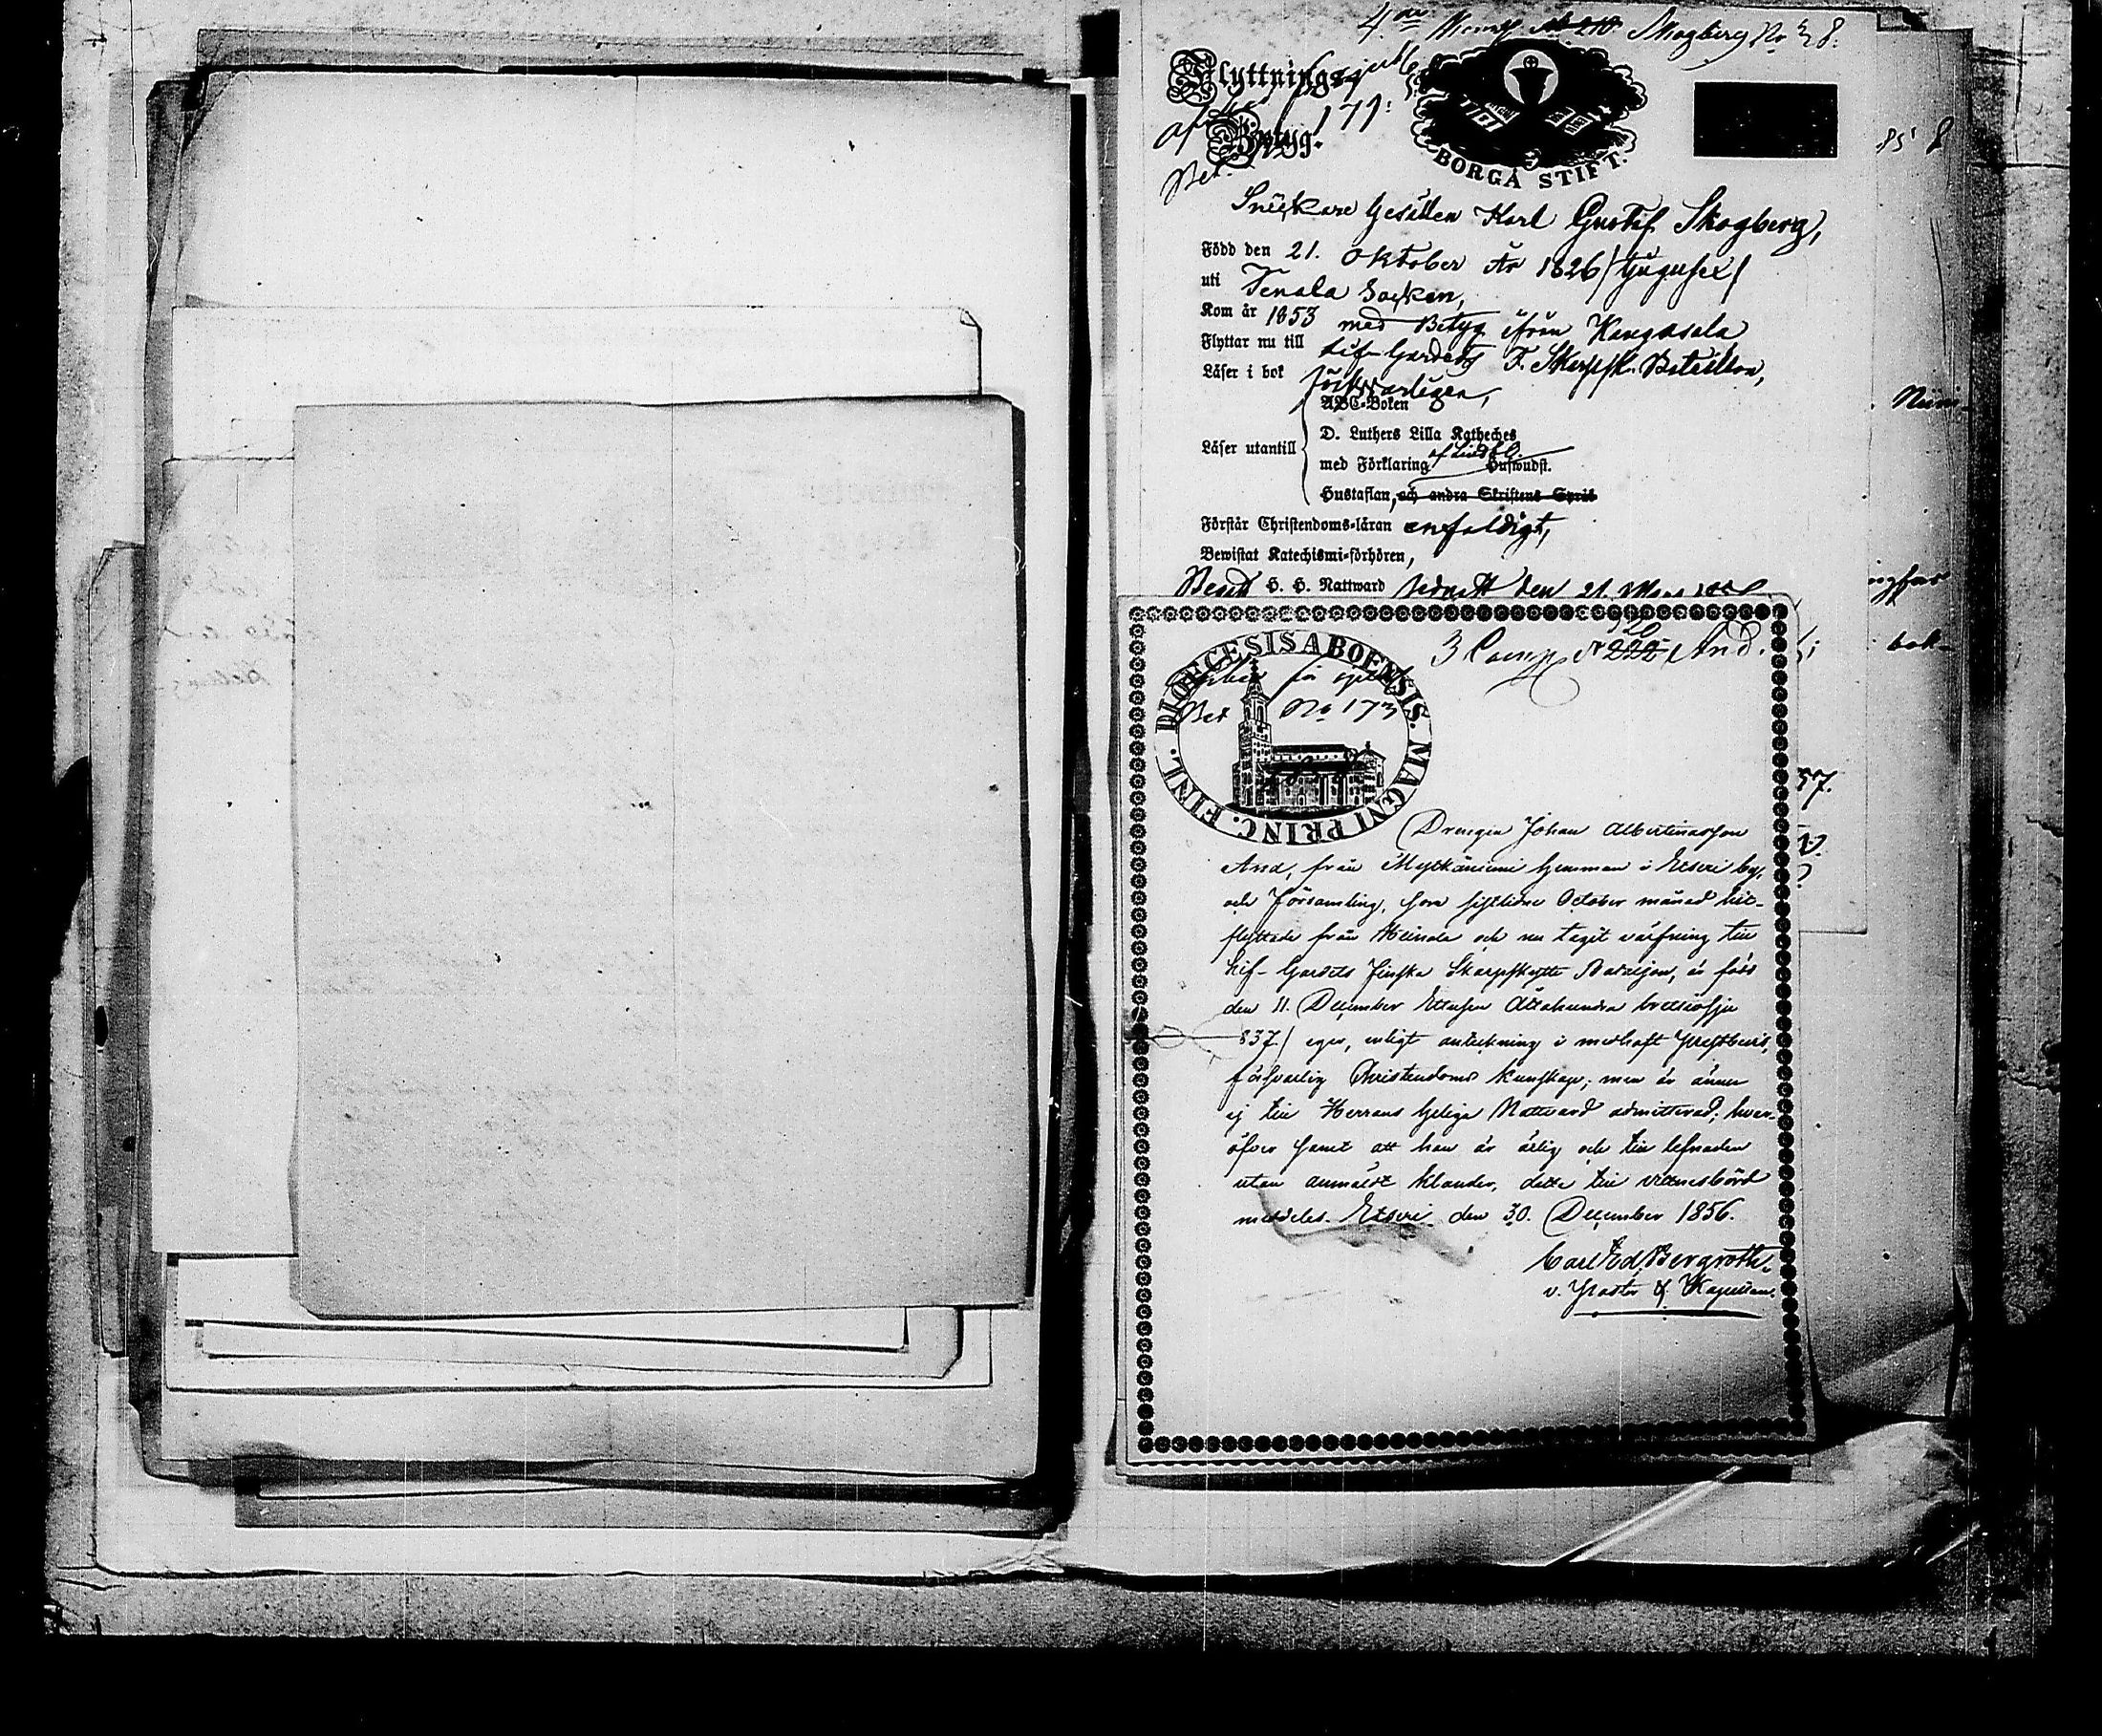 4.de Skogberg No 28.
Flyttnings-
Betyg.
171:
BORGÅ STIFT.
Snickare Gesällen Karl Gustaf Skogberg,
Född den 21. Oktober År 1826 /tjugusex/
uti Tenala Socken,
Kom år 1853 med Betyg ifrån Kangasala
Flyttar nu till Lif-Gardets F. Skarpsk. Bataillon,
Läser i bok försvarligen,
ABC-Boken
D. Luthers Lilla Katheches
Läser utantill
med Förklaring Huswudst.
Hustaflan, och andra Skriftens Språk
Förstår Christendoms-läran enfaldigt,
Bewistat Katechismi-förhören,
H. H. Nattward den 21.
ingfors
bok-
57.
3 Comp. N 222 And.
20
DIOECESIS ABOENSIS. MAGNI PRINC. FINL.
Bet No 173
Drengen Johan Albertinasson
And, från Mytkäniemi hemman i Etseri by,
och Församling, som sistlidne October månad hit-
flyttade från och nu tagit värfning till
Lif-Gardets Finska Skarpskytte Bataljon, är född
den 11. December Ettusen Åttahundra trettiosju
837/ eger, enligt anteckning i medhaft Prestbevis,
försvarlig Christendoms kunskap; men är ännu
ej till Herrans heliga Nattvard admitterad; hvar-
öfver samt att han är ärlig och till lefnaden
utan anmäldt klander, detta till vittnesbörd
meddeles. Etseri den 30. December 1856.
Carl Ed. Bergroth.
v. Pastor & Kapellan.